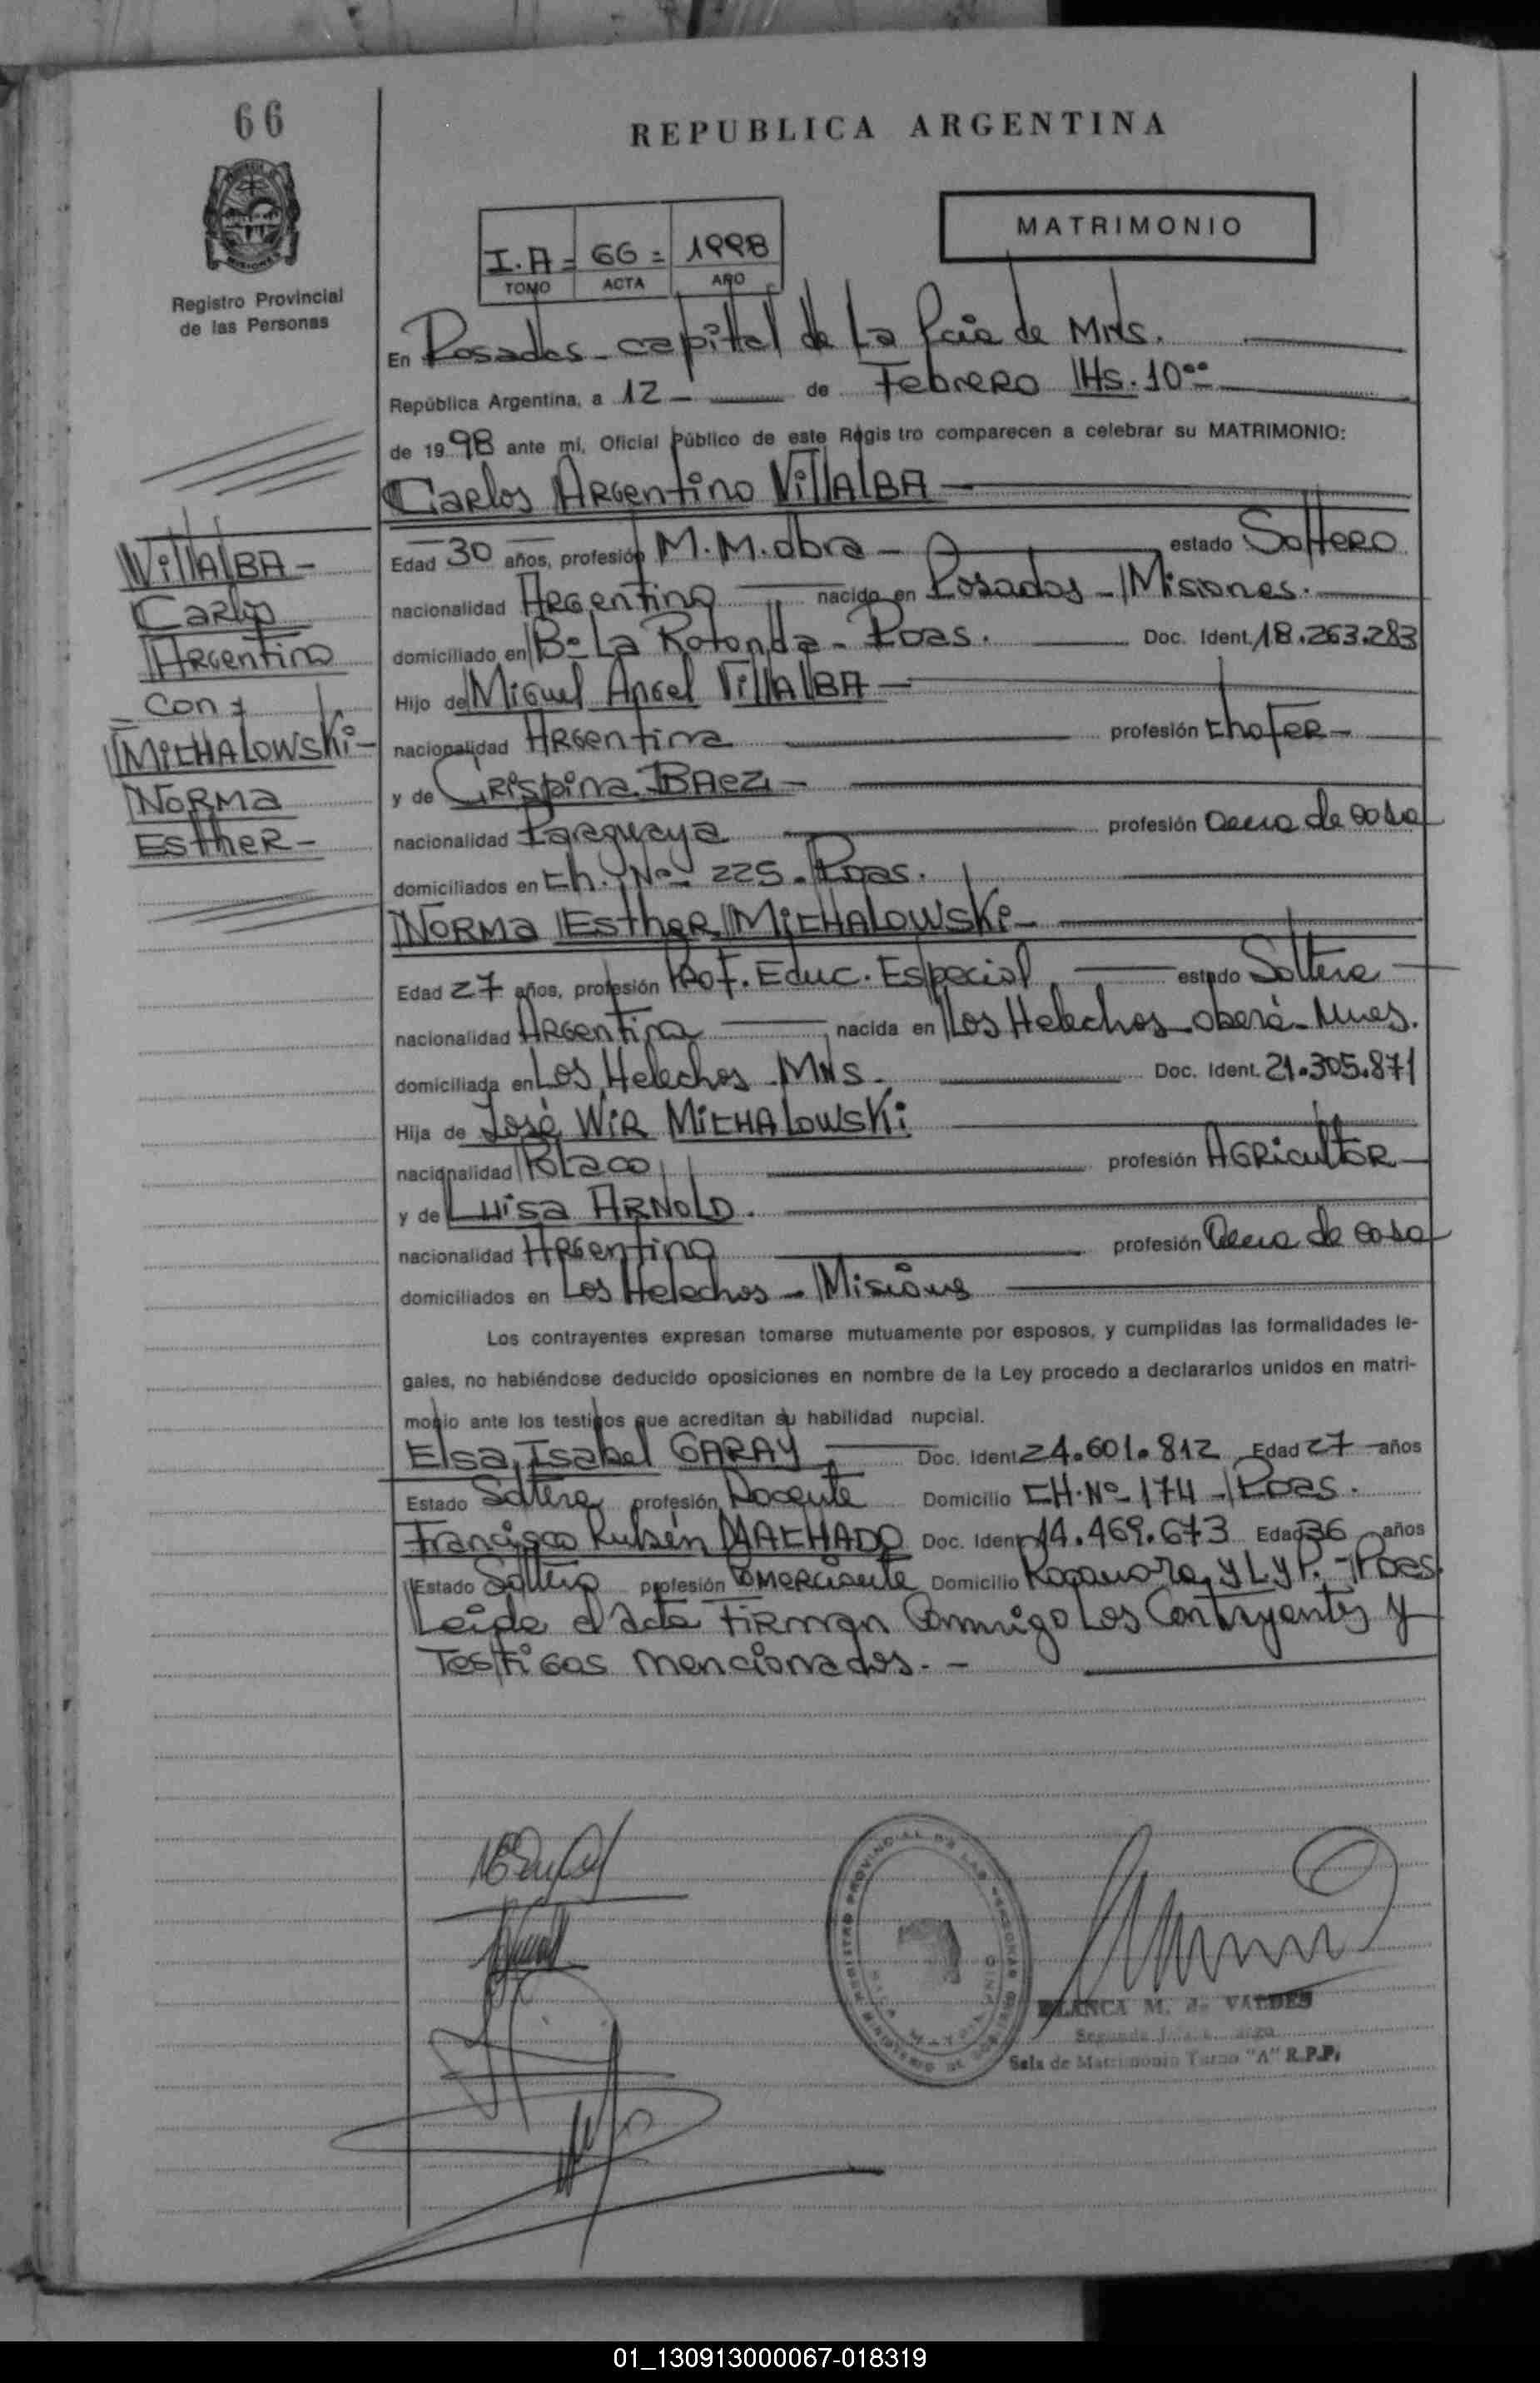 66
REPUBLICA ARGENTINA
MATRIMONIO
I.A= 66= 1998
TOMO ACTA AÑO
Registro Provincial
de las Personas
En Posadas - capital de La Pcia de Mns.
República Argentina, a 12 - de Febrero Hs. 10°°
de 1998 ante mí, Oficial Público de este Regis tro comparecen a celebrar su MATRIMONIO:
Carlos Argentino VillAlBA
Edad 30 años, profesión M.M.obra - estado Soltero
nacionalidad Argentino nacido en Posadas - Misiones.
domiciliado en B= La Rotonda - Pdas. Doc. Ident. 18.263.283
Hijo de Miguel Angel VillAlBA
nacionalidad Argentina profesión Chofer -
y de Crispina BAez -
nacionalidad Paraguaya profesión Ama de casa
domiciliados en Ch. Nº 225. Pdas.
Norma Esther MICHALOWSKi -
Edad 27 años, profesión Prof. Educ. Especial estado Soltera
nacionalidad Argentina nacida en Los Helechos - Oberá - Mnes.
domiciliada en Los Helechos - MNS. Doc. Ident. 21.305.871
Hija de José WiR MICHALOWSKi
nacionalidad Polaco profesión Agricultor
y de Luisa ARNOLD.
nacionalidad Argentina profesión Ama de casa
domiciliados en Los Helechos - Misiones
Los contrayentes expresan tomarse mutuamente por esposos, y cumplidas las formalidades le-
gales, no habiéndose deducido oposiciones en nombre de la Ley procedo a declararlos unidos en matri-
monio ante los testigos que acreditan su habilidad nupcial.
Elsa Isabel GARAY Doc. Ident 24.601.812 Edad 27 años
Estado Soltera profesión Docente Domicilio CH. Nº 174 - Pdas.
Francisco Rubén MACHADO Doc. Ident 14.469.673 Edad 36 años
Estado Soltero profesión Comerciante Domicilio Rocamora y L y P. - Pdas.
Leida el Acta Firman Conmigo Los Contrayentes y
Testigos mencionados. -
VillAlBA -
Carlos
Argentino
Con
MICHALOWSKi -
Norma
Esther -
BLANCA M. de VALDES
Sala de Matrimonio Turno "A" R.P.P.
01_130913000067-018319